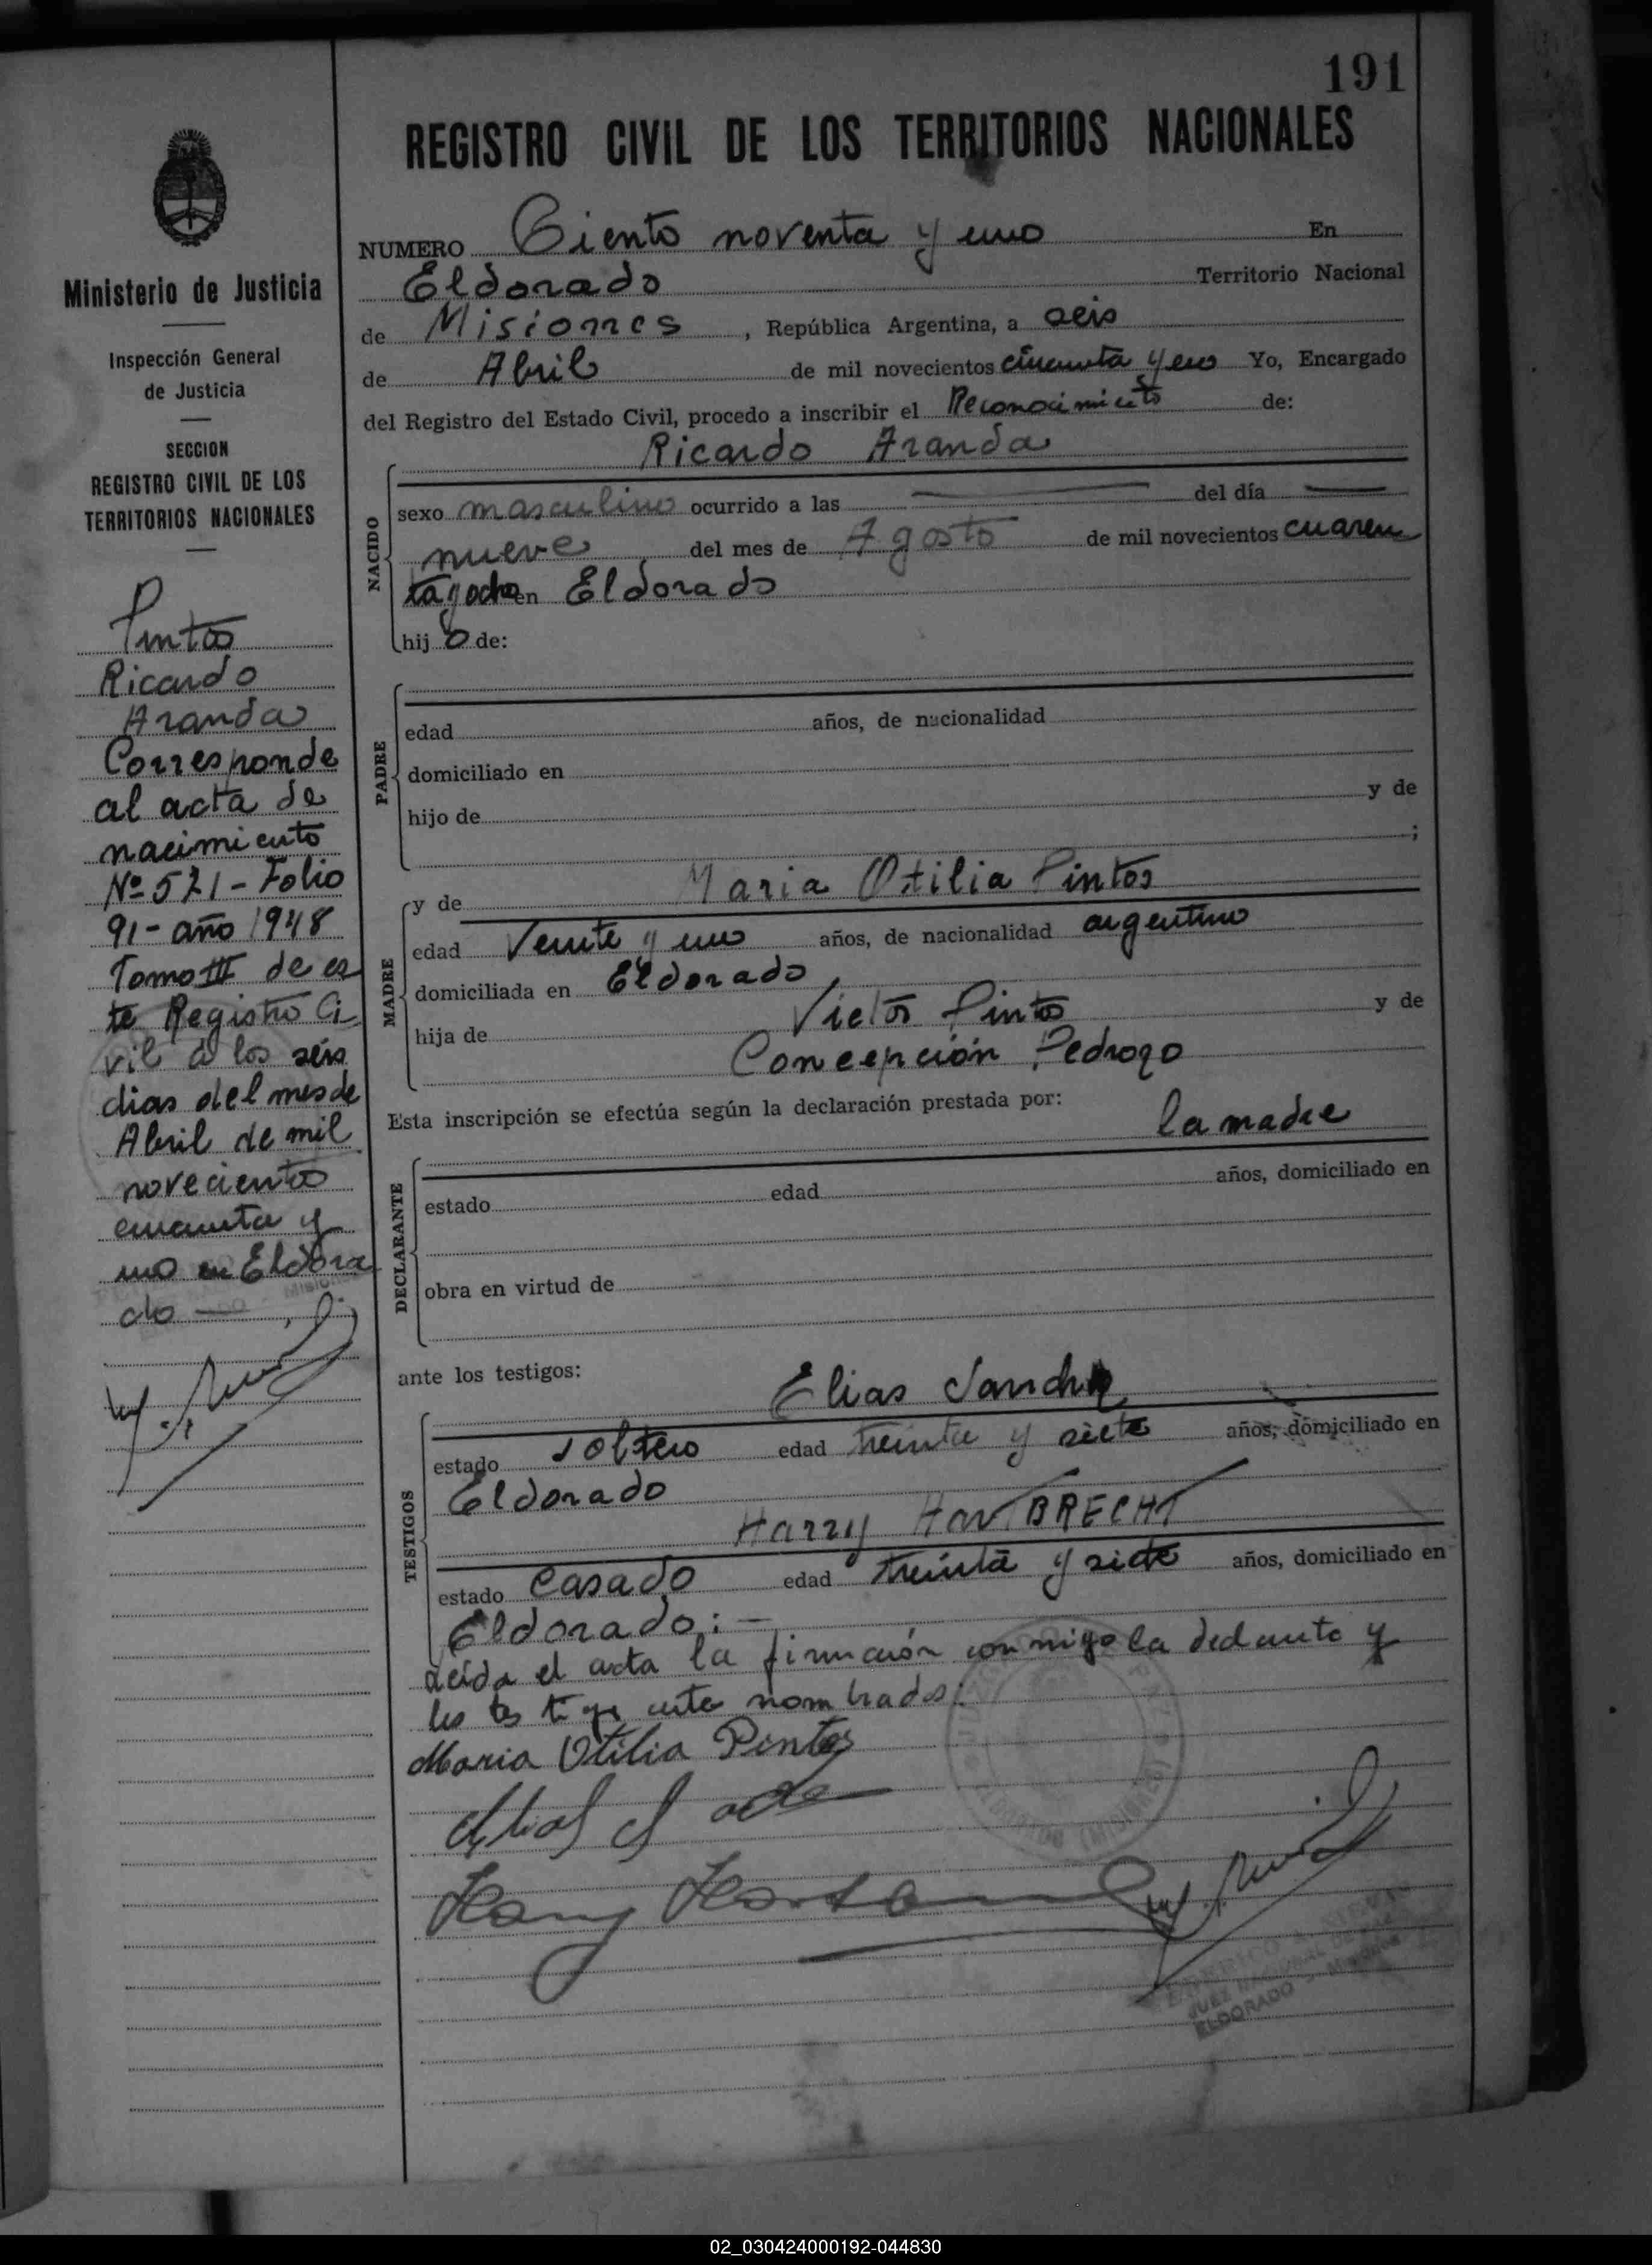 191
REGISTRO CIVIL DE LOS TERRITORIOS NACIONALES
Ministerio de Justicia
Inspección General
de Justicia
SECCION
REGISTRO CIVIL DE LOS
TERRITORIOS NACIONALES
Pintos
Ricardo
Aranda
Corresponde
al acta de
nacimiento
Nº 521 - Folio
91 - año 1948
Tomo III de es
te Registro Ci
vil a los seis
dias del mes de
Abril de mil
novecientos
cincuenta y
uno en Eldora
do —
NUMERO Ciento noventa y uno En
Eldorado Territorio Nacional
de Misiones, República Argentina, a seis
de Abril de mil novecientos cincuenta y uno Yo, Encargado
del Registro del Estado Civil, procedo a inscribir el Reconocimiento de:
Ricardo Aranda
NACIDO
sexo masculino ocurrido a las — del día —
nueve del mes de Agosto de mil novecientos cuaren
ta y ocho en Eldorado
hijo de:
PADRE
edad años, de nacionalidad
domiciliado en
hijo de y de
;
MADRE
y de Maria Otilia Pintos
edad Veinte y uno años, de nacionalidad argentino
domiciliada en Eldorado
hija de Victor Pintos y de
Concepción Pedrozo
Esta inscripción se efectúa según la declaración prestada por:
la madre
DECLARANTE
estado edad años, domiciliado en
obra en virtud de
ante los testigos:
TESTIGOS
Elias Sanchez
estado soltero edad treinta y siete años, domiciliado en
Eldorado
Harry HartBRECHT
estado Casado edad treinta y siete años, domiciliado en
Eldorado: —
Leída el acta la firmarón conmigo la
los testigos ante nombrados:
Maria Otilia Pintos
Elias
Harry
JUEZ NACIONAL DE PAZ
ELDORADO - MISIONES
02_030424000192-044830